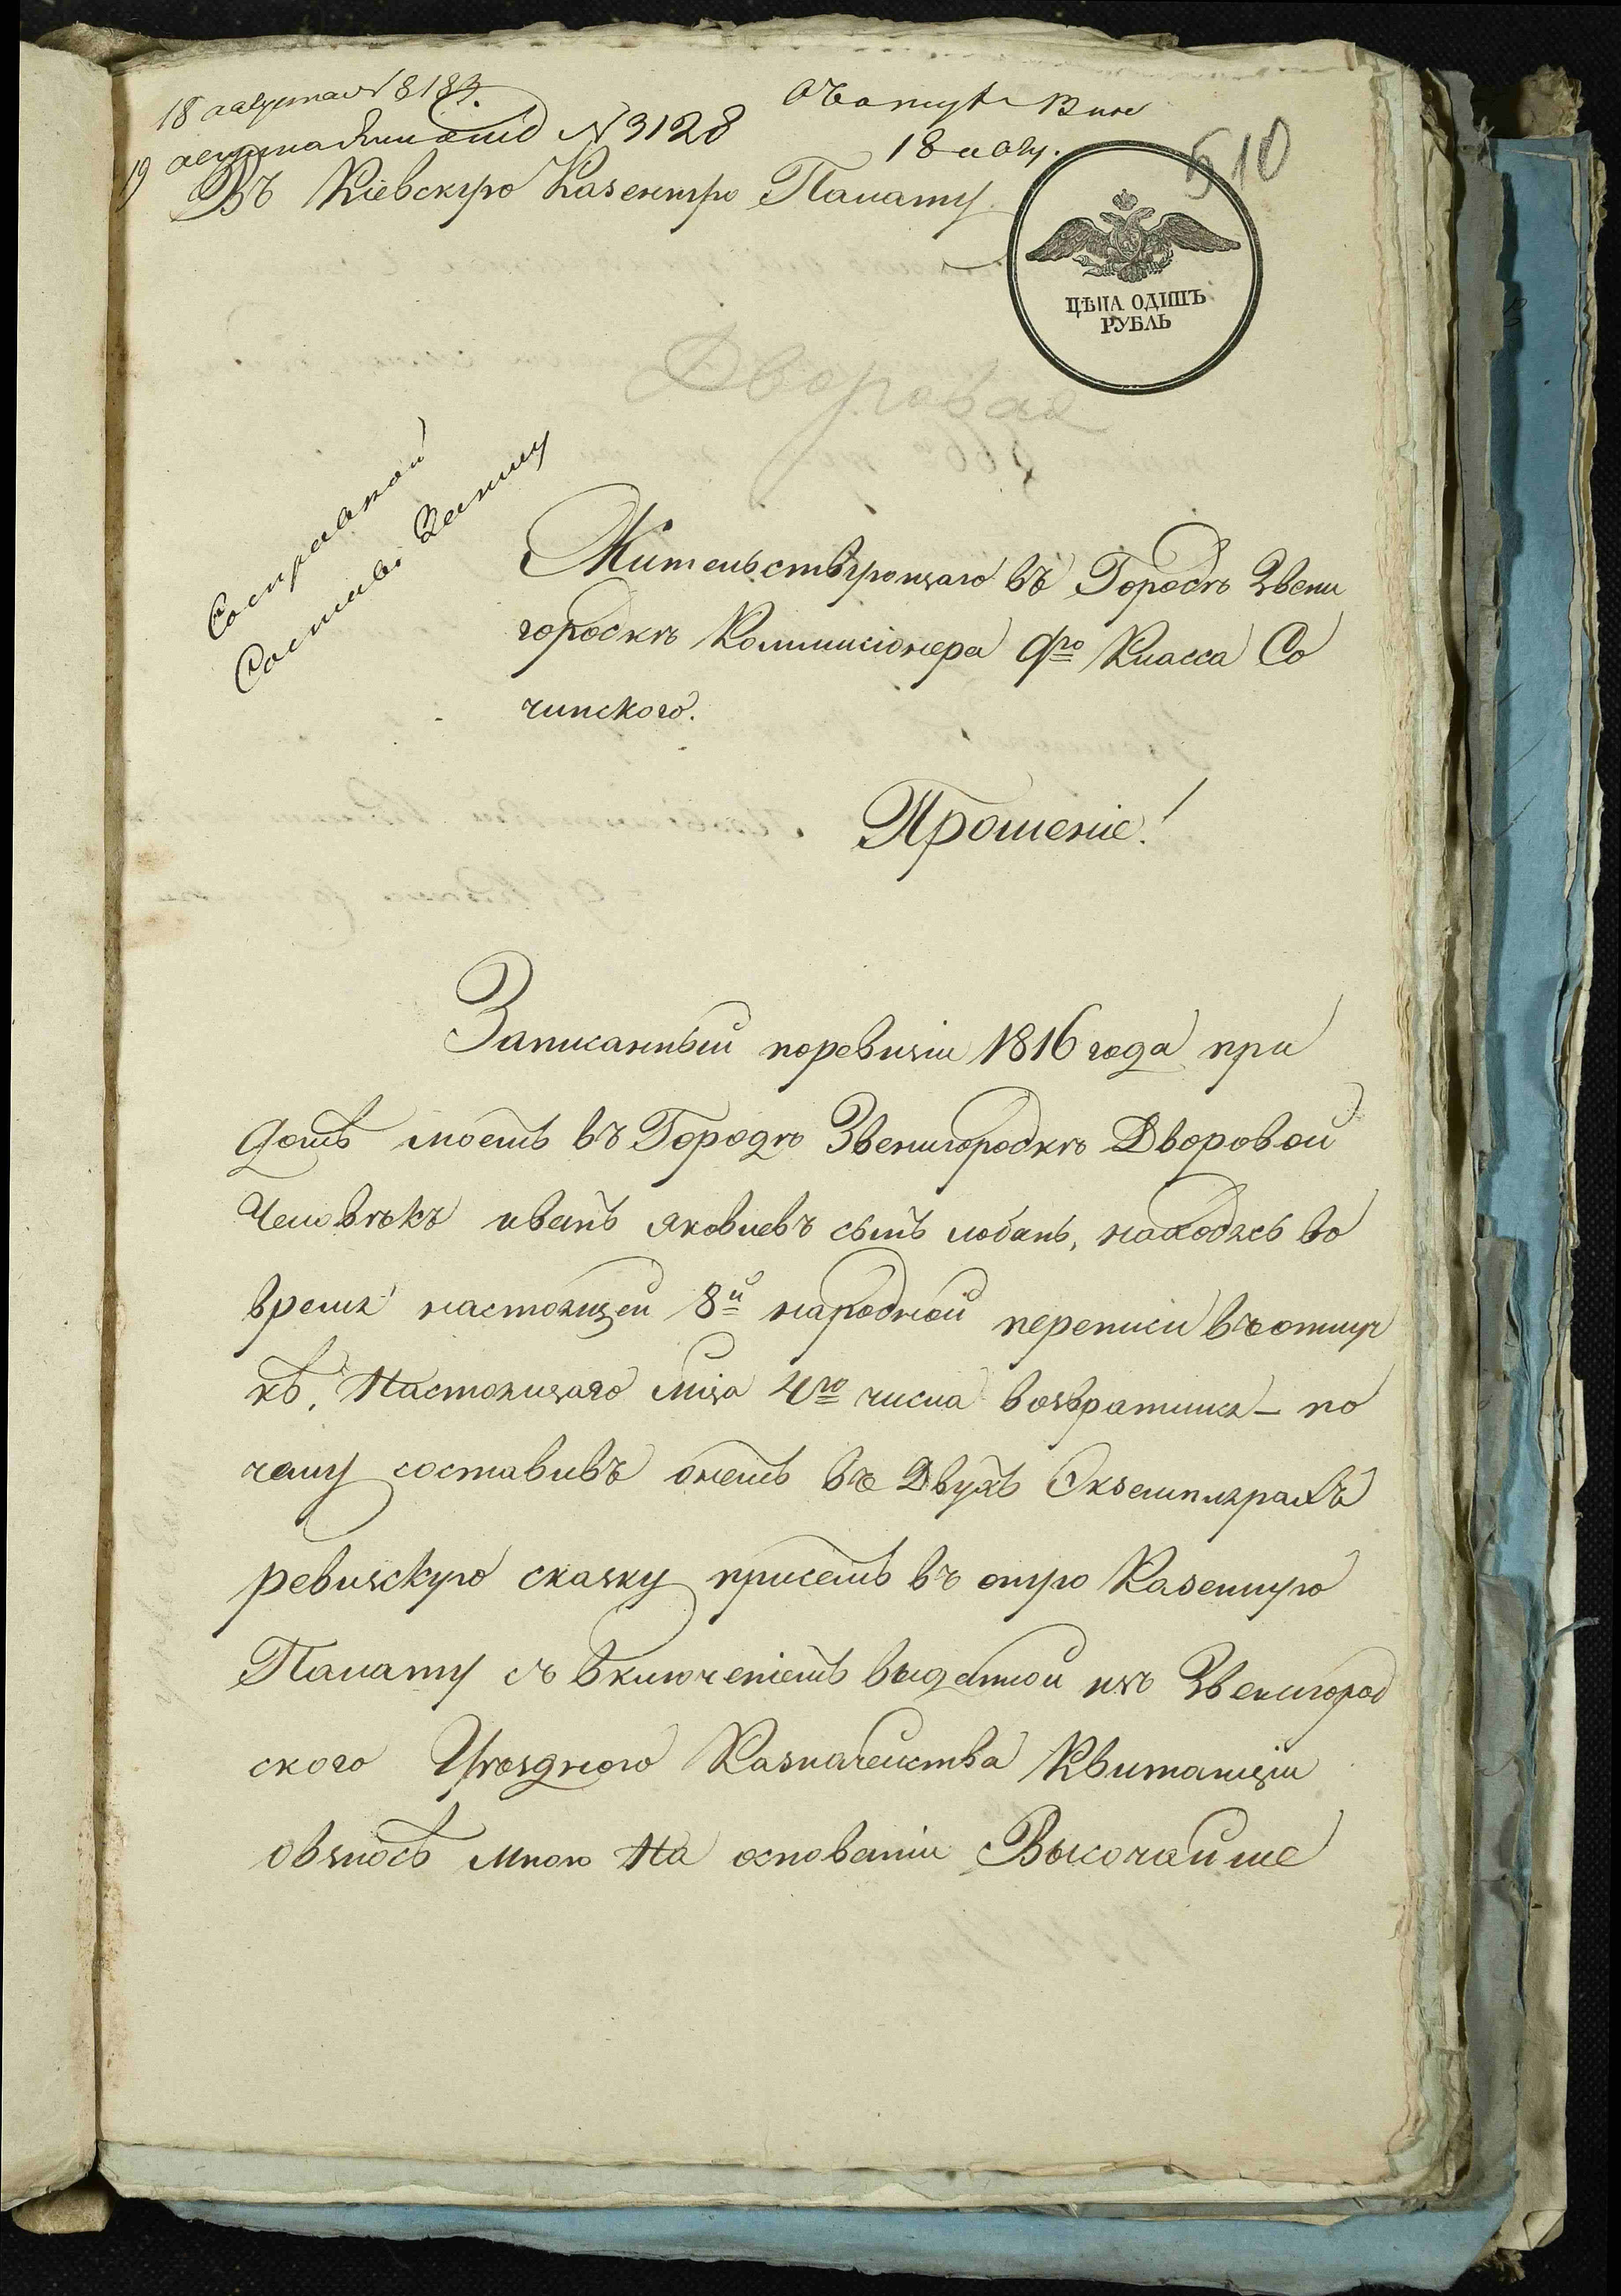 18 августа 1834.
19 августа № 3128
18 авгу.
510
Въ Кіевскую Казенную Палату
ЦѢНА ОДИНЪ
РУБЛЬ
Дворовая
Со справкой
Составь Записку
Жительствующаго въ Городѣ Звени
городкѣ Коммисіонера 9го Класса Со
чинского.
Прошеніе!
Записанный поревизіи 1816 года при
домѣ моемъ въ Городѣ Звенигородкѣ Дворовой
Человѣкъ иванъ яковлевъ сынъ лобань, находясь во
время настоящей 8й народной переписи въотлуч
кѣ, Настоящаго мца 4го числа возвратился – по
чему составивъ онемъ въ Двухъ Экземплярахъ
ревизскую сказку присемъ въ оную Казенную
Палату съ включеніемъ выданной изъ Звенигород
ского Уѣзднаго Казначейства Квитанціи
овзносѣ мною На основаніи Высочайше